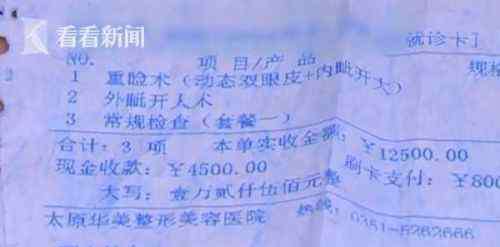 看看新闻
就诊卡
NO. 项目/产品 规格
1 重睑术（动态双眼皮+内眦开大）
2 外眦开大术
3 常规检查（套餐一）
合计：3 项 本单实收金额：￥12500.00
现金收款：￥4500.00 刷卡支付：￥800
大写：壹万贰仟伍佰元整
太原华美整形美容医院 热线：0351-5262666